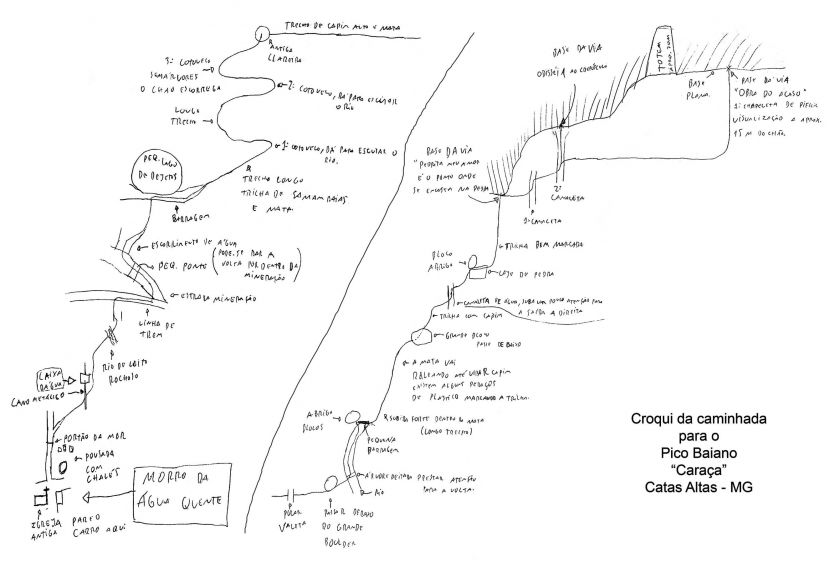 TRECHO DE CAPIM ALTO E MATA
ANTIGA
CLAREIRA
3º COTOVELO
SAMAMBAIAS
O CHAO ESCORREGA
2º COTOVELO, DÁ PARA ESCUTAR
O RIO
LONGO
TRECHO
1º COTOVELO, DÁ PARA ESCUTAR O
RIO.
PEQ. LAGO
DE DEJETOS
TRECHO LONGO
TRILHA DE SAMAMBAIAS
E MATA
BARRAGEM
ESCORRIMENTO DE ÁGUA
PEQ. PONTE
(PODE-SE DAR A
VOLTA POR DENTRO DA
MINERAÇÃO)
ESTRADA MINERAÇÃO
LINHA DE
TREM
RIO DE LEITO
ROCHOSO
CAIXA
DÁGUA
CANO METALICO
PORTÃO DA MBR
POUSADA
COM
CHALÉS
MORRO DA
ÁGUA QUENTE
IGREJA
ANTIGA
PARE O
CARRO AQUI
BASE DA VIA
ODISSÉIA NO
TOTEM
BASE
PLANA
BASE DA VIA
"OBRA DO ACASO"
1ª CHAPELETA DE DIFICIL
VISUALIZAÇÃO A APROX.
15 M DO CHÃO.
BASE DA VIA
É O PONTO ONDE
SE ENCOSTA NA PEDRA
2ª
CANALETA
1ª CANALETA
TRILHA BEM MARCADA
BLOCO
ABRIGO
LAJE DE PEDRA
CANALETA DE ÁGUA, SUBA UM POUCO ATENÇÃO PARA
A SAIDA A DIREITA
TRILHA COM CAPIM
GRANDE BLOCO
PASSE DE BAIXO
A MATA VAI
RALEANDO ATÉ VIRAR CAPIM
EXISTEM ALGUNS PEDAÇOS
DE PLASTICO MARCANDO A TRILHA.
ABRIGO
BLOCOS
SUBIDA FORTE DENTRO DA MATA
(LONGO TRECHO)
PEQUENA
BARRAGEM
ÁRVORE DEITADA PRESTAR ATENÇÃO
PARA A VOLTA.
RIO
PULAR
VALETA
PASSAR DEBAIXO
DO GRANDE
BOULDER
Croqui da caminhada
para o
Pico Baiano
“Caraça”
Catas Altas - MG